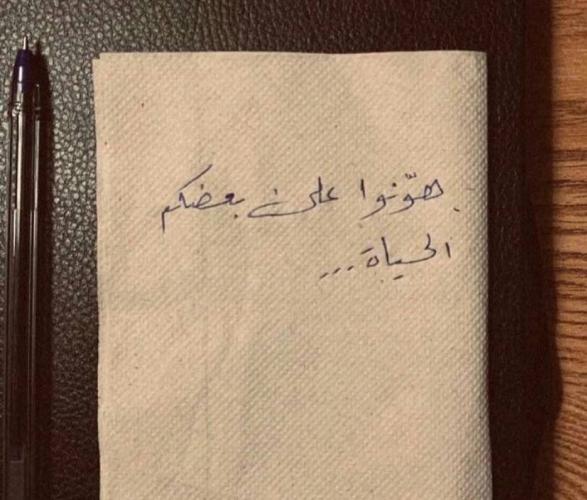 هوّنوا على بعضكم
الحياة...